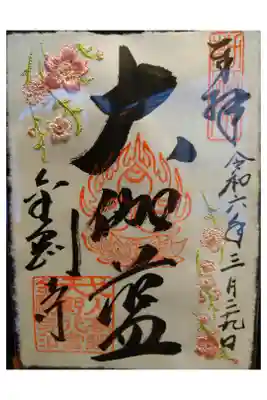 奉拝
令和六年三月二九日
大伽藍
金剛寺